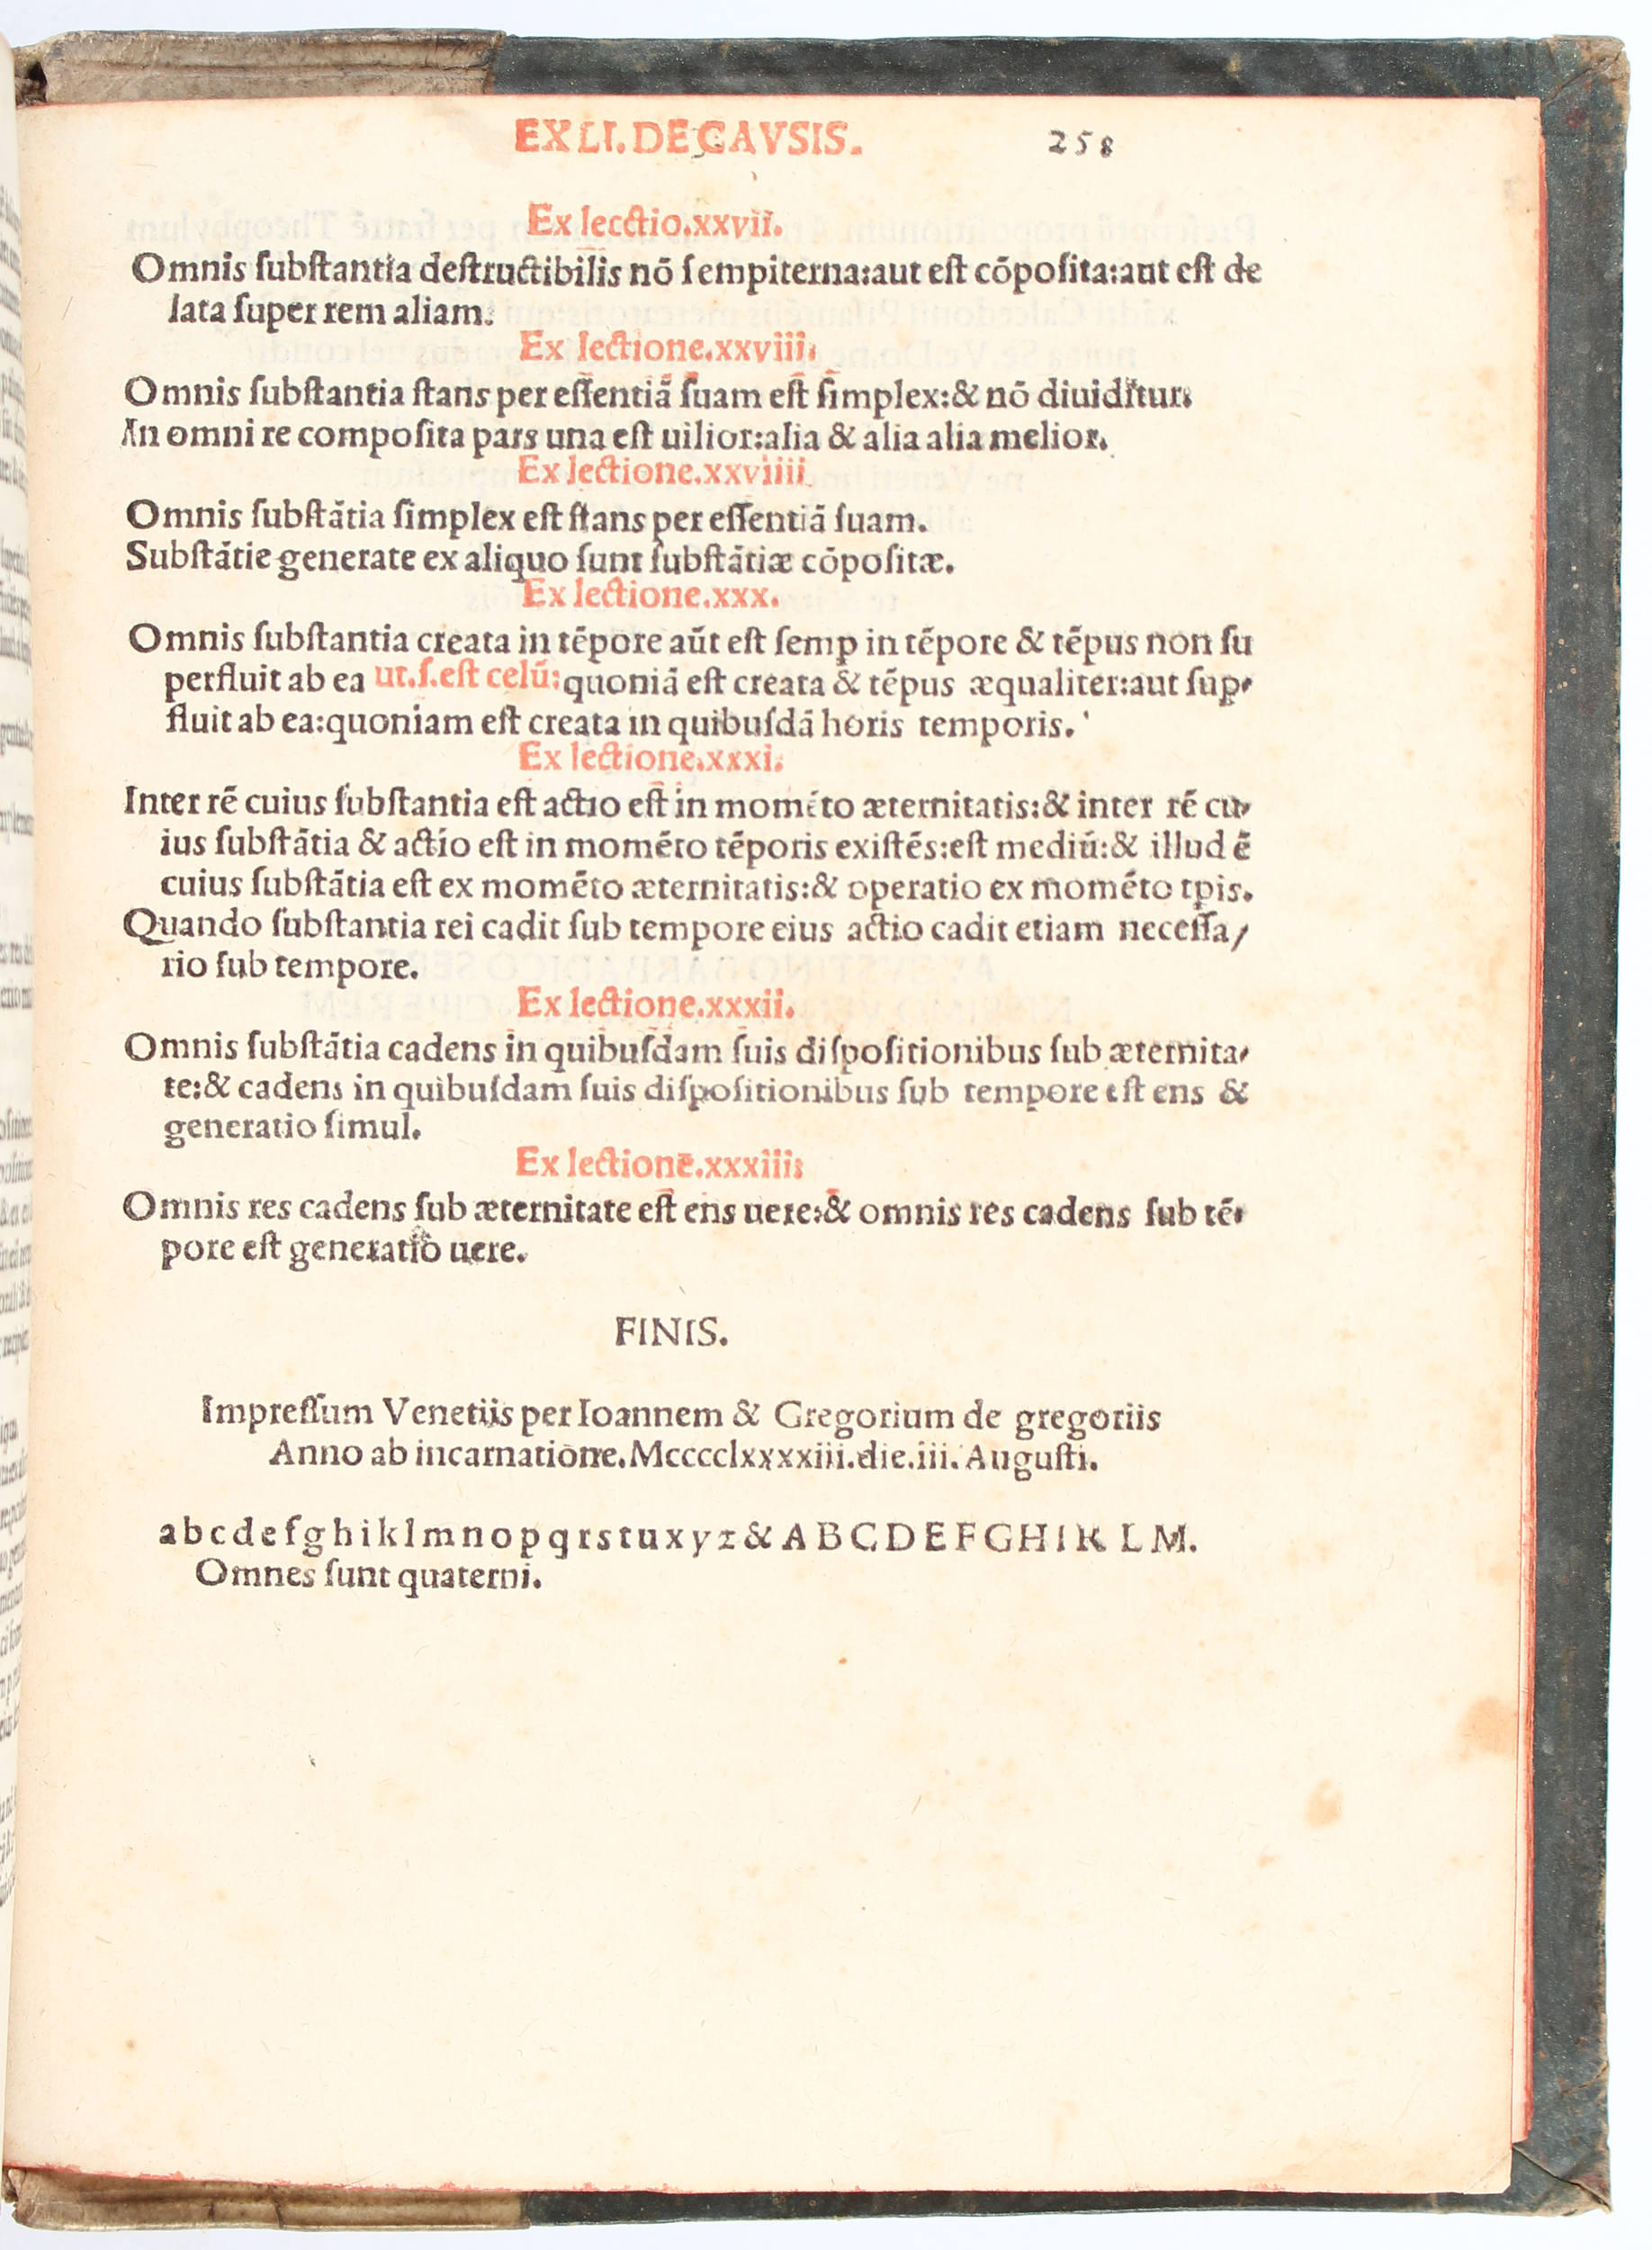 EX LI. DE CAVSIS. 258
Ex lecctio.xxvii.
Omnis ſubſtantia deſtructibilis nō ſempiterna:aut eſt cōpoſita:aut eſt de
lata ſuper rem aliam.
Ex lectione.xxviii.
Omnis ſubſtantia ſtans per eſſentiā ſuam eſt ſimplex:& nō diuiditur.
In omni re compoſita pars una eſt uilior:alia & alia alia melior.
Ex lectione.xxviiii
Omnis ſubſtātia ſimplex eſt ſtans per eſſentiā ſuam.
Subſtātie generate ex aliquo ſunt ſubſtātiæ cōpoſitæ.
Ex lectione.xxx.
Omnis ſubſtantia creata in tēpore aūt eſt ſemp in tēpore & tēpus non ſu
perfluit ab ea ut.ſ.eſt celū:quoniā eſt creata & tēpus æqualiter:aut ſup
fluit ab ea:quoniam eſt creata in quibuſdā horis temporis.
Ex lectione.xxxi.
Inter rē cuius ſubſtantia eſt actio eſt in momēto æternitatis:& inter rē cu
ius ſubſtātia & actio eſt in momēto tēporis exiſtēs:eſt mediū:& illud ē
cuius ſubſtātia eſt ex momēto æternitatis:& operatio ex momēto tpis.
Quando ſubſtantia rei cadit ſub tempore eius actio cadit etiam neceſſa/
rio ſub tempore.
Ex lectione.xxxii.
Omnis ſubſtātia cadens in quibuſdam ſuis diſpoſitionibus ſub æternita
te:& cadens in quibuſdam ſuis diſpoſitionibus ſub tempore eſt ens &
generatio ſimul.
Ex lectionē.xxxiii:
Omnis res cadens ſub æternitate eſt ens uere:& omnis res cadens ſub tē
pore eſt generatio uere.
FINIS.
Impreſſum Venetiis per Ioannem & Gregorium de gregoriis
Anno ab incarnatione.Mcccclxxxxiii.die.iii.Auguſti.
a b c d e f g h i k l m n o p q r s t u x y z & A B C D E F G H I K L M.
Omnes ſunt quaterni.